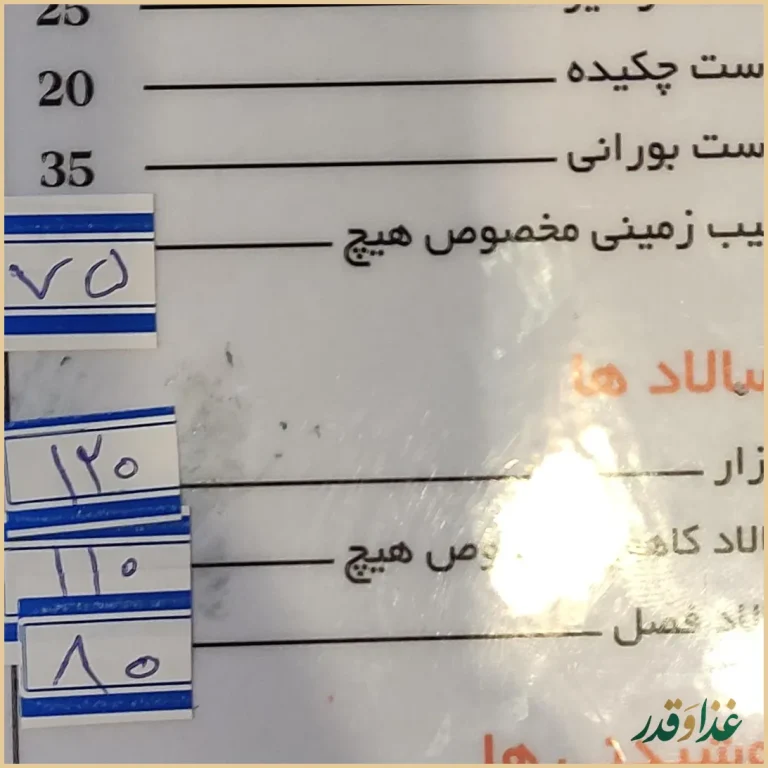 25
ست چکیده 20
ست بورانی 35
یب زمینی مخصوص هیچ ۷۵
سالاد ها
زار ۱۲۰
الاد هیچ ۱۱۰
فصل ۸۰
غذا و قدر